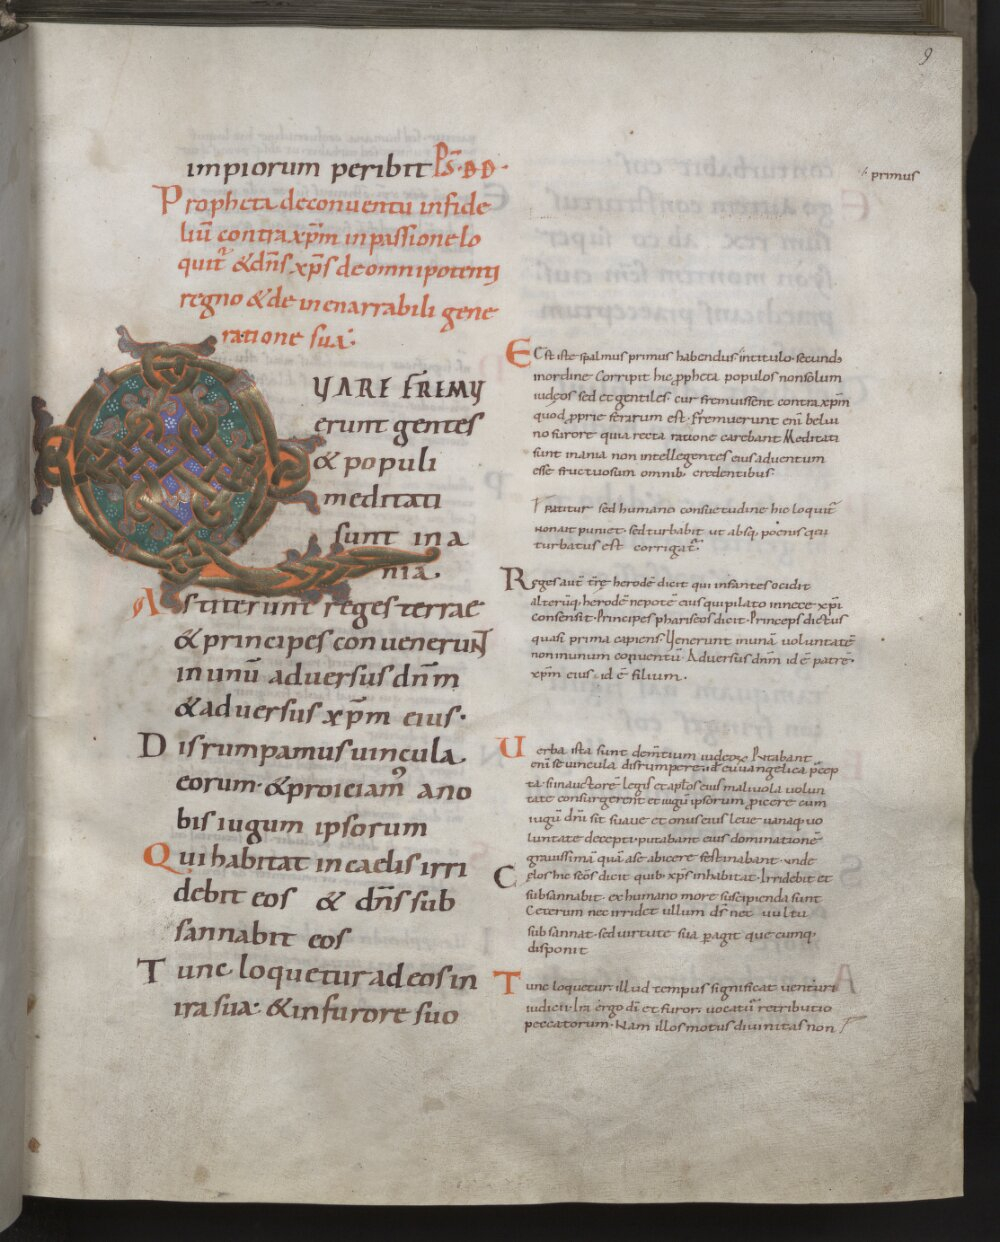 9
impiorum peribit PS̄. DD.
primus
Propheta deconuentu infide
liū contra xp̄m in passione lo
quit᷑ & dn̄s xp̄s de omnipotenti
regno & de inenarrabili gene
ratione sua.
QVARE FREMV
erunt gentes
& populi
meditati
sunt ina
nia.
Astiterunt reges terrae
& principes conuenerunt
inunū aduersus dn̄m
& aduersus xp̄m eius.
Disrumpamus uincula
eorum. & proiciam᷒ ano
bis iugum ipsorum
Qui habitat incaelis irri
debit eos & dn̄s sub
sannabit eos
Tunc loquetur ad eos in
ira sua. & in furore suo
Est iste spalmus primus habendus intitulo. secundo
inordine Corripit hic ꝓpheta populos nonsolum
iudeos sed et gentiles. cur fremuissent contra xp̄m
quod ꝓprie ferarum est. Fremuerunt enī belui
no furore quia recta ratione carebant Meditata
sunt inania non intellegentes eius aduentum
esse fructuosum omnib; credentibus.
Iratitur sed humano consuetudine hic loquit᷑
Non ait puniet. sed turbabit ut absq; poenis
turbatus est corrigat᷑.
Reges aut̄ tr̄e herodē dicit qui infantes ocidit
alterūq; herodē nepotē eius qui pilato innece xp̄i
consensit. Principes phariseos dicit. Princeps dictus
quasi prima capiens. Uenerunt inunā uoluntatē
non inunum conuentū. Aduersus dn̄m id ē patrē.
xp̄m eius. id ē filium.
Uerba ista sunt dementium iudeoꝝ Putabant
enī se uincula disrumpere. id ē euuangelica p̄cep
ta. si inauctorē legis et aplōs eius maliuola uolun
tate consurgerent et iugū ipsorum ꝓicere cum
iugū dn̄i sit suaue et onus eius leue uanaq; uo
luntate decepti. putabant eius dominationē
grauissimā quā ase abicere festinabant. unde
Celos hic sc̄os dicit quib; xp̄s inhabitat. Irridebit et
subsannabit. ex humano more suscipienda sunt
Ceterum nec irridet ullum ds̄ nec uultu
subsannat. sed uirtute sua ꝑagit que cumq;
disponit
Tunc loquetur. illud tempus significat uenturi
iudicii. Ira ergo dī et furor. uocatū retributio
peccatorum. Nam illos motus diuinitas non